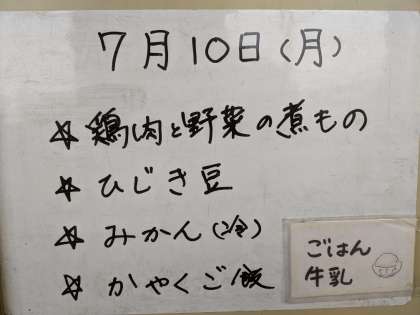 7月10日(月)
☆ 鶏肉と野菜の煮もの
☆ ひじき豆
☆ みかん(冷)
☆ かやくご飯
ごはん
牛乳